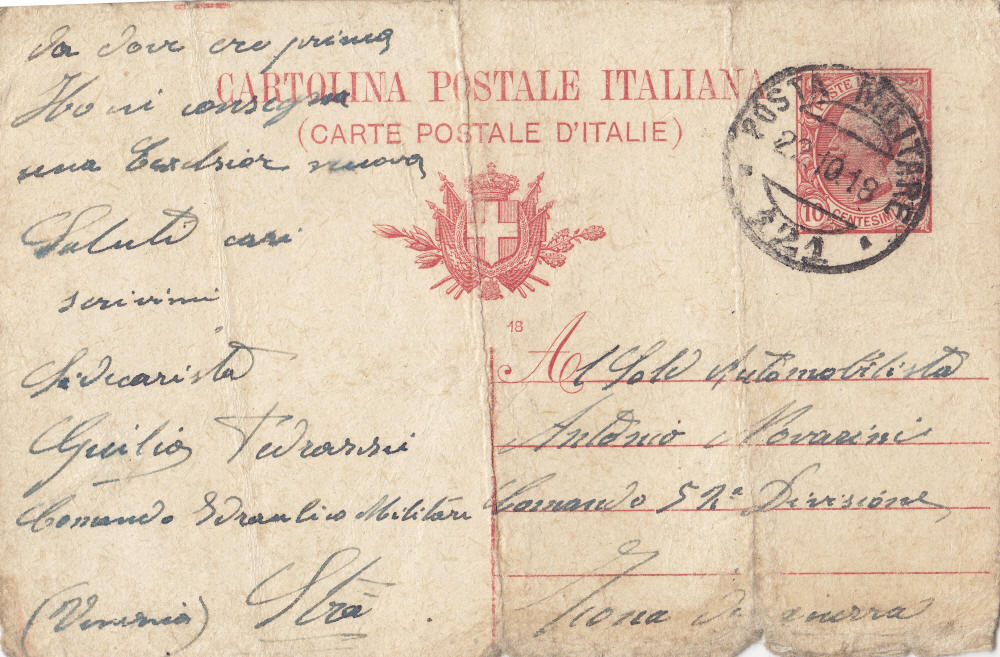 da dove ero prima
Ho in consegna
una Excelsior nuova
Saluti cari
scrivimi
Sidecarista
Guilio Tedrazzi
Comando Idraulico Militare
Strà
(Venezia)
CARTOLINA POSTALE ITALIANA
(CARTE POSTALE D'ITALIE)
POSTE
10 CENTESIMI
POSTA MILITARE
22.10.18
121
18
Al Sold Automobilista
Antonio Novarini
Comando 52ª Divisione
Zona di guerra